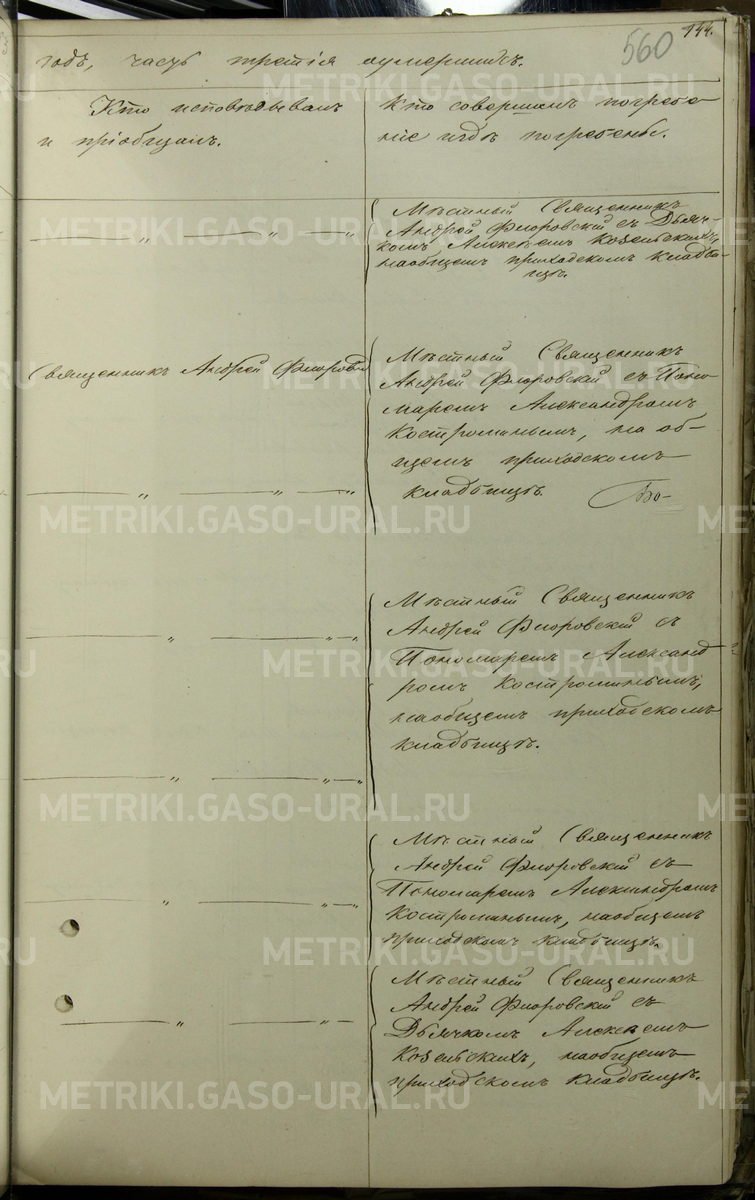 560
144.
годъ, часть третія оумершихъ.
Кто исповѣдывалъ
и пріобщалъ.
Кто совершалъ погребе
ніе и гдѣ погребены.
Мѣстный Священникъ
Андрей Флоровскій съ Дьяч-
комъ Алексѣемъ Козельскихъ,
на общемъ приходскомъ кладби-
щѣ.
Священникъ Андрей Флоровскій
Мѣстный Священникъ
Андрей Флоровскій съ Поно
маремъ Александромъ
Костроминымъ, на об-
щемъ приходскомъ
кладбищѣ.
Мѣстный Священникъ
Андрей Флоровскій съ
Пономаремъ Александ
ромъ Костроминымъ,
на общемъ приходскомъ
кладбищѣ.
Мѣстный Священникъ
Андрей Флоровскій съ
Пономаремъ Александромъ
Костроминымъ, на общемъ
приходскомъ кладбищѣ.
Мѣстный Священникъ
Андрей Флоровскій съ
Дьячкомъ Алексѣемъ
Козельскихъ, на общемъ
приходскомъ кладбищѣ.
METRIKI.GASO-URAL.RU